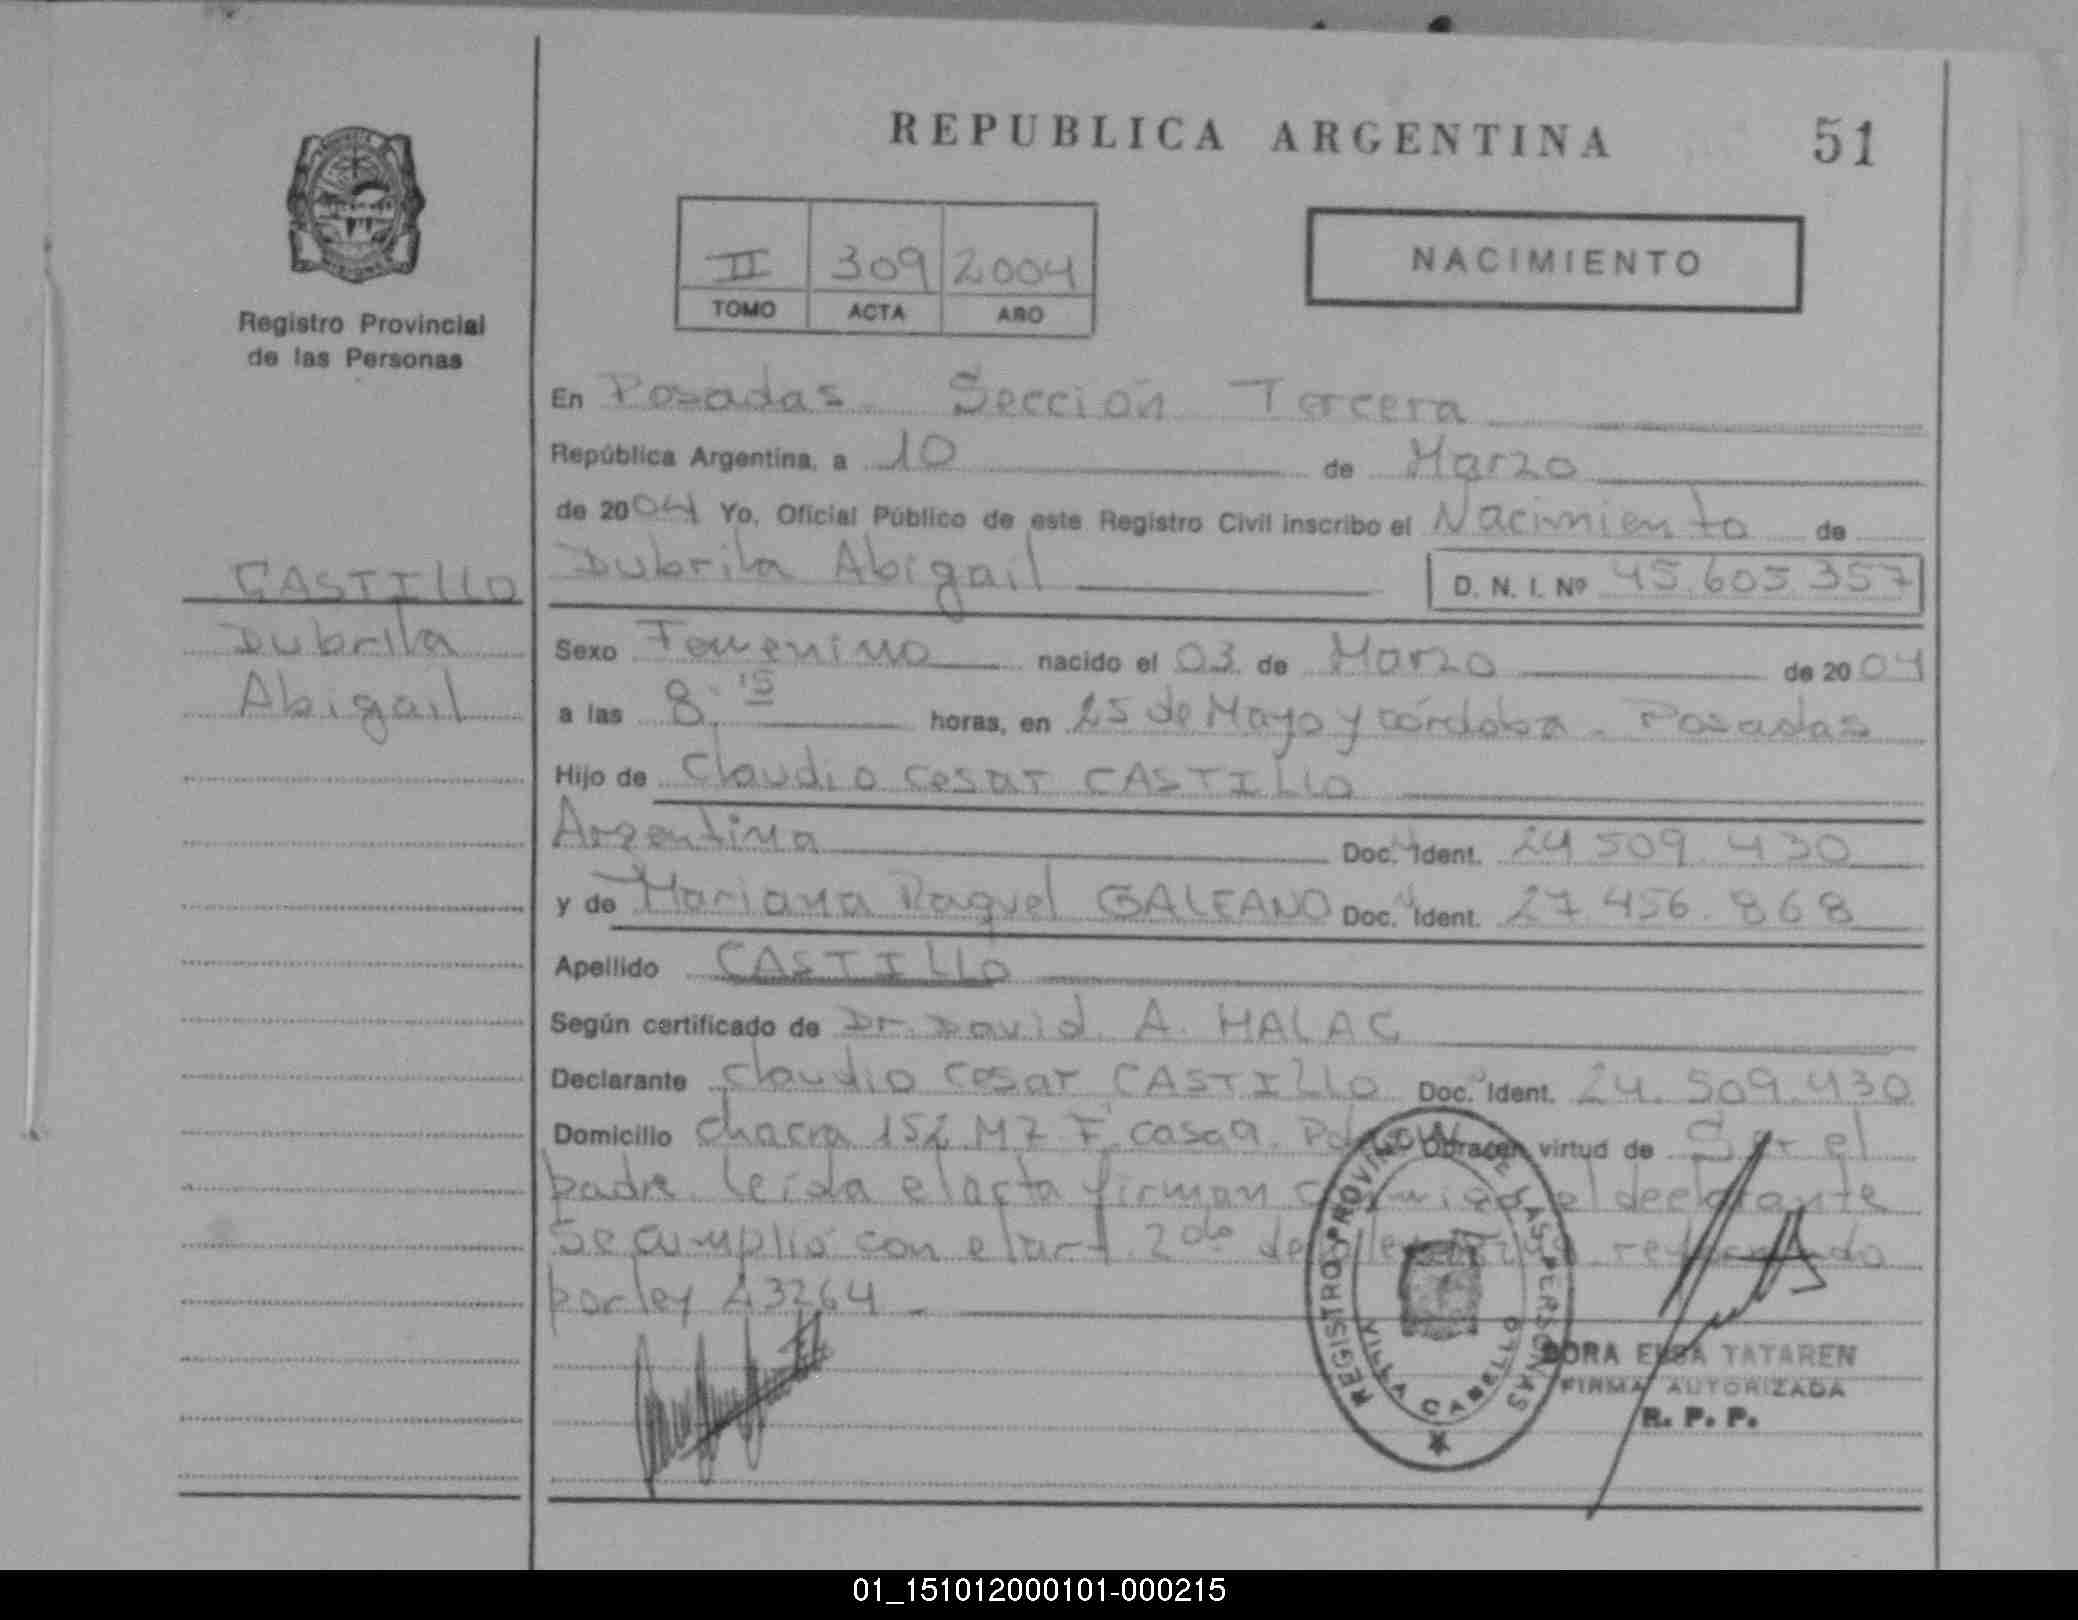 REPUBLICA ARGENTINA
51
PROVINCIA DE MISIONES
Registro Provincial
de las Personas
II 309 2004
TOMO ACTA AÑO
NACIMIENTO
En Posadas Sección Tercera
República Argentina, a 10 de Marzo
de 2004 Yo, Oficial Público de este Registro Civil inscribo el Nacimiento de
CASTILLO
Dubrila
Abigail
Dubrila Abigail D. N. I. Nº 45.605.357
Sexo Femenino nacido el 03 de Marzo de 2004
a las 8.15 horas, en 25 de Mayo y córdoba - Posadas
Hijo de Claudio Cesar CASTILLO
Argentina Doc. Ident. 24 509.430
y de Mariana Raquel GALEANO Doc. Ident. 27.456.868
Apellido CASTILLO
Según certificado de Dr. David A. HALAC
Declarante Claudio Cesar CASTILLO Doc. Ident. 24.509.430
Domicilio chacra 152 M7 F casa 9 Obra en virtud de Ser el
padre leida el acta firman conmigo el declarante
Se cumplió con el art. 2do de
por ley 23264 -
REGISTRO PROVINCIAL DE LAS PERSONAS
VILLA CABELLO
DORA ELSA TATAREN
FIRMA AUTORIZADA
R. P. P.
01_151012000101-000215